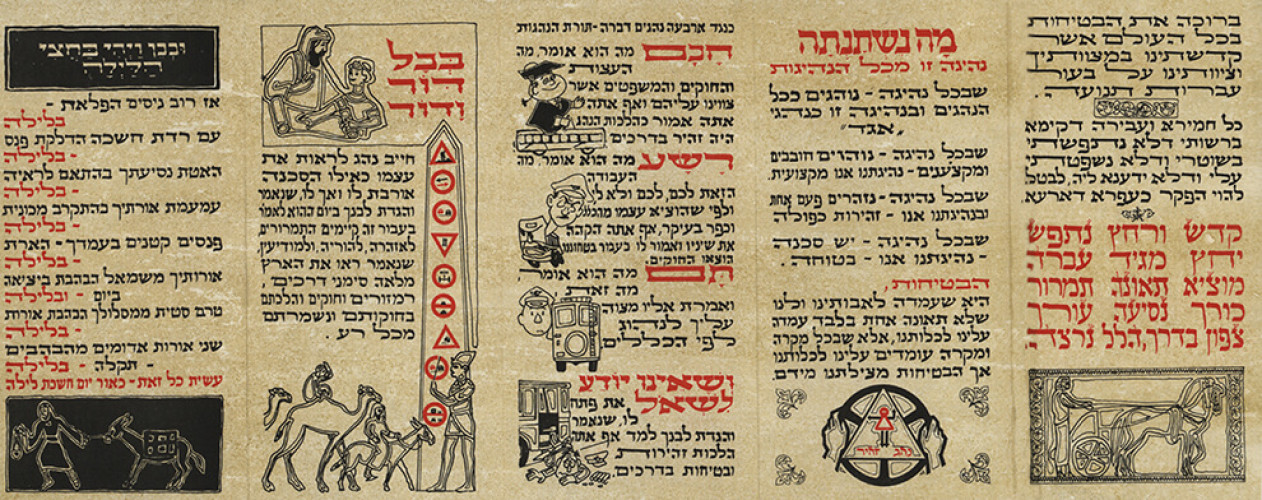 ברוכה את הבטיחות
בכל העולם אשר
קדשתינו במצוותיך
וציוותינו על בעור
עברות תנועה.
כל חמירא ועבירה דקימא
ברשותי דלא נתפשתי
בשוטרי ודלא נשפטתי
עלי ודלא ידענא ליה, לבטל
להוי הפקר כעפרא דארעא.
קדש ורחץ נתפש
ירחץ מגיד עברה
מוציא תאונה תמרור
כורך נסיעה עורך
צפון בדרך, הלל נרצה.
מה נשתנתה
נהיגה זו מכל הנהיגות
שבכל נהיגה - נוהגים ככל
הנהגים ובנהיגה זו כנהגי
"אגד"
שבכל נהיגה - נוהרים חובבים
ומקצענים - נהיגתנו אנו מקצועית.
שבכל נהיגה - נזהרים פעם אחת
ובנהיגתנו אנו - זהירות כפולה
שבכל נהיגה - יש סכנה
- נהיגתנו אנו - בטוחה.
הבטיחות,
היא שעמדה לאבותינו ולנו
שלא תאונה אחת בלבד עמדה
עלינו לכלותנו, אלא שבכל מקרה
ומקרה עומדים עלינו לכלותנו
אך הבטיחות מצילתנו מידם.
נהג זהיר
כנגד ארבעה נהגים דברה - תורת הנהגות
חכם מה הוא אומר, מה
העצות
והחוקים, והמשפטים אשר
צווינו עליהם ואף אתה
אתה אמור כהלכות הנהג
היה זהיר בדרכים.
רשע מה הוא אומר, מה
העבודה
הזאת לכם, לכם ולא לי
ולפי שהוציא עצמו מהכלל
וכפר בעיקר, אף אתה הקהה
את שיניו ואמור לו בעבור בטחוננו
הוצאו החוקים.
תם מה הוא אומר
מה זאת,
ואמרת אליו מצוה
עליך לנהוג
לפי הכללים.
ושאינו יודע
לשאל את פתח
לו, שנאמר
והגדת לבנך למד אף אתה
הלכות זהירות
ובטיחות בדרכים.
בכל
דור
ודור
חייב נהג לראות את
עצמו כאילו הסכנה
אורבת לו ואך לו, שנאמר
והגדת לבנך ביום ההוא לאמר
בעבור זה קיימים התמרורים,
לאזהרה, להוריה, ולמודיעין,
שנאמר ראו את הארץ
מלאה סימני דרכים,
רמזורים וחוקים והלכתם
בחוקותם ונשמרתם
מכל רע.
ובכן ויהי בחצי
הלילה
אז רוב ניסים הפלאת -
בלילה
עם רדת חשכה הדלקת פנס
- בלילה
האטת נסיעתך בהתאם לראיה
- בלילה
עמעמת אורתיך בהתקרב מכונית
- בלילה
פנסים קטנים בעמדך - הארת
- בלילה
אורותיך משמאל הבהבת ביציאה
ביום - ובלילה
טרם סטית ממסלולך הבהבת אורות
- בלילה
שני אורות אדומים מהבהבים
- תקלה - בלילה
עשית כל זאת - כאור יום חשכת לילה